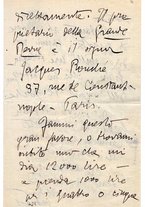 direttamente. Il pro
prietario della Grande
Revue è il signor
Jacques Rouché
37, rue de Constant-
nople - Paris.
Fammi questo
gran favore, o Giovanni
subito uno che mi
dia 12000 lire
e prenda 1000 lire
per i quattro o cinque